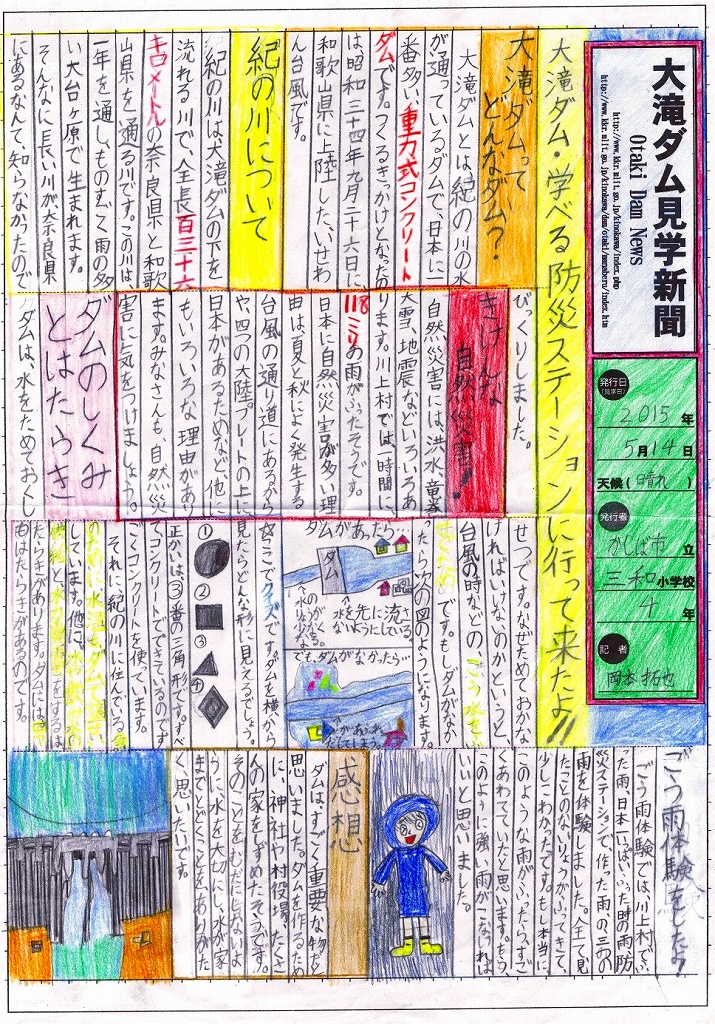 大滝ダム見学新聞
Otaki Dam News
http://www.kkr.mlit.go.jp/kinokawa/index.php
http://www.kkr.mlit.go.jp/kinokawa/dam/otaki/manaberu/index.htm
発行日
(見学日)
2015年
5月14日
天候(晴れ)
発行者
かしば市立
三和小学校
4年
記者
岡本拓也
大滝ダム・学べる防災ステーションに行って来たよ!!
大滝ダムって
どんなダム?
大滝ダムとは、紀の川の水
が通っているダムで、日本に一
番多い、重力式コンクリート
ダムです。つくるきっかけとなったの
は、昭和三十四年九月二十六日に
和歌山県に上陸した、いせわ
ん台風です。
紀の川について
紀の川は大滝ダムの下を
流れる川で、全長百三十六
キロメートルの奈良県と和歌
山県を通る川です。この川は、
一年を通し、ものすごく雨の多
い大台ヶ原で生まれます。
そんなに長い川が、奈良県
にあるなんて、知らなかったので
びっくりしました。
きけんな
自然災害!
自然災害には、洪水、竜巻、
大雪、地震などいろいろあ
ります。川上村では、一時間に、
118ミリの雨がふったそうです。
日本に自然災害が多い理
由は、夏と秋によく発生する
台風の通り道にあるから
や、四つの大陸プレートの上に
日本があるためなど、他に
もいろいろな理由があり
ます。みなさんも、自然災
害に気をつけましょう。
ダムのしくみ
とはたらき
ダムは、水をためておくし
せつです。なぜためておかな
ければいけないのかというと、
台風の時などの、こう水を
です。もしダムがなか
ったら次の図のようになります。
ダムがあったら…
ダム
水を先に流さ
ないようにしている
でも、ダムがなかったら…
ここでクイズです。ダムを横から
見たらどんな形に見えるでしょう。
①
②
③
④
正かいは、③番の三角形です。すべ
てコンクリートでできているのです
ごくコンクリートを使っています。
それに紀の川に住んでいる
しています。他に、
たらきがあります。ダムには、
もはたらきがあるのです。
ごう雨体験をしたよ!
ごう雨体験では、川上村でふ
った雨、日本一いっぱいふった時の雨、防
災ステーションで作った雨の、三つの
雨を体験しました。全て見
たことのないりょうがふってきて
少しこわかったです。もし本当に
このような雨がふったらすご
くあわてていたと思います。もう
このように強い雨がこなければ
いいと思いました。
感想
ダムは、すごく重要な物だと
思いました。ダムを作るため
に、神社や村役場、たくさ
んの家をしずめたそうです。
そのことをむだにしないよ
うに水を大切にし、水が家
までとどくことをありがた
く思いたいです。